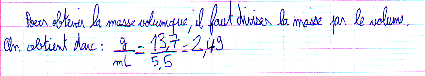 Pour obtenir la masse volumique, il faut diviser la masse par le volume.
On obtient donc : g/mL = 13,7/5,5 = 2,49